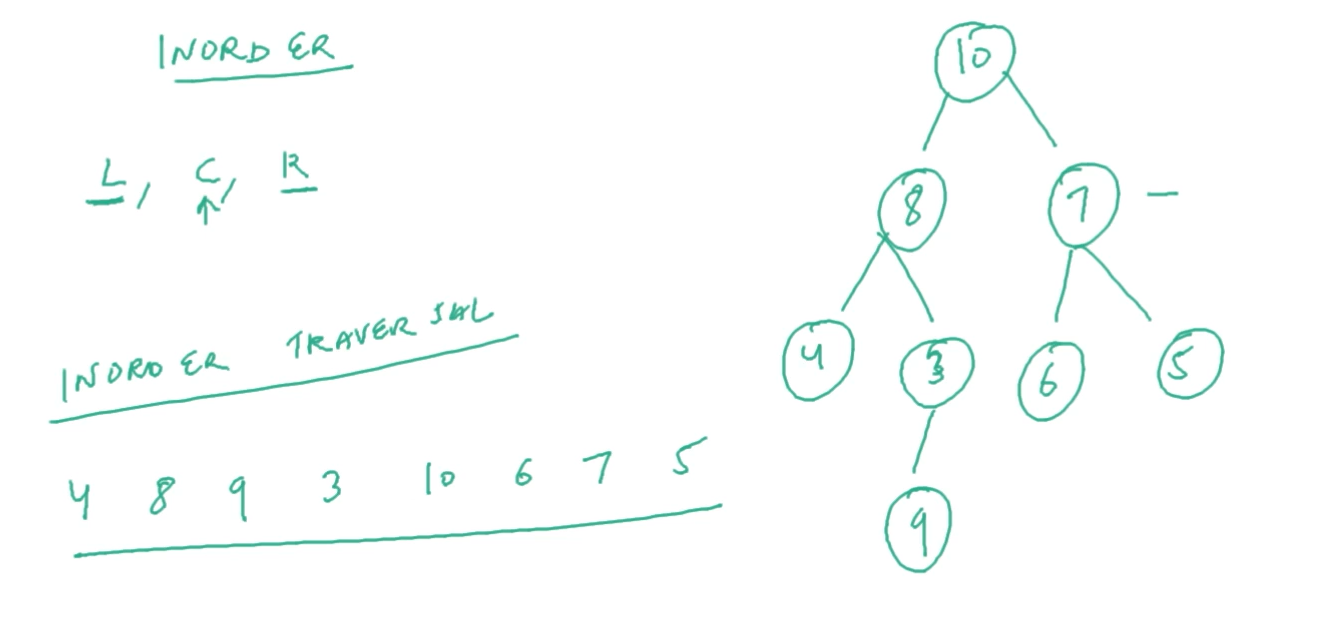 INORDER
L, C, R
INORDER TRAVERSAL
4 8 9 3 10 6 7 5
10
8 7
4 3 6 5
9